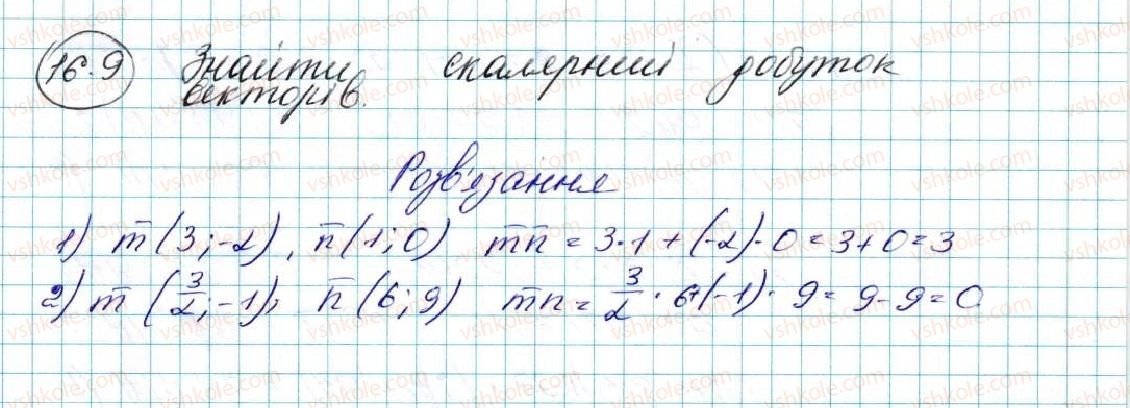 16.9 Знайти скалярний добуток
векторів.
Розв'язання
1) m̅ (3; -2), n̅ (1; 0) m̅n̅ = 3·1 + (-2)·0 = 3 + 0 = 3
2) m̅ (3/2; -1), n̅ (6; 9) m̅n̅ = 3/2 · 6 + (-1) · 9 = 9 - 9 = 0